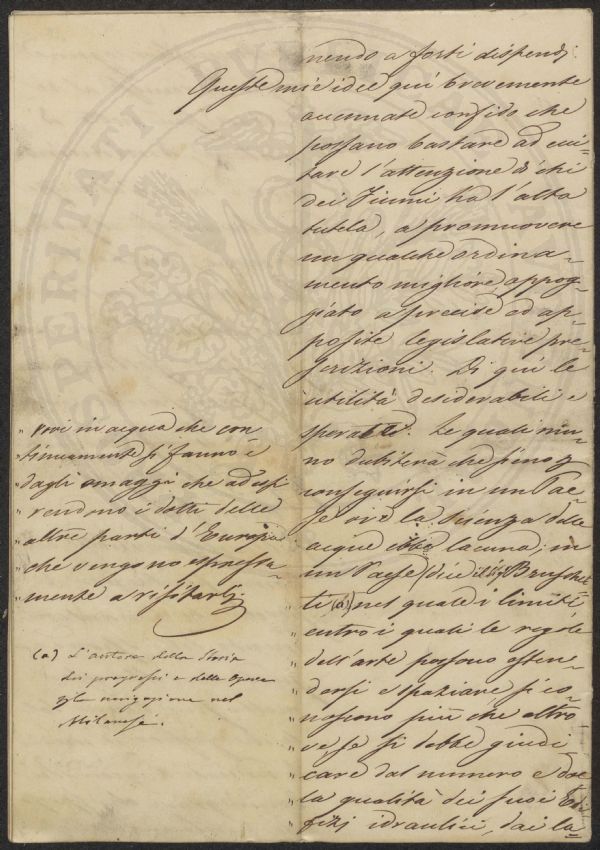 nendo a forti dispendj.
Queste mie idee quì brevemente
accennate confido che
possano bastare ad ecci-
tare l'attenzione di chi
dei Fiumi ha l'alta
tutela, a promuovere
un qualche ordina-
mento migliore, appog-
giato a precise ed ap-
posite legislative pre-
scrizioni. Di quì le
utilità desiderabili e
sperate. Le quali niu-
no dubiterà che sieno p
conseguirsi in un Pae-
se ove la scienza delle
acque ebbe la cuna; in
un Paese (dice il Sig. Bruschet-
ti (a)) " nel quale i limiti,
" entro i quali le regole
" dell'arte possono esten-
" dersi e spaziare si co-
" noscono più che altro-
" ve, se si debbe giudi-
" care dal numero e dal-
" la qualità dei suoi Edi-
" fizj idraulici, dai la-
" vori in acqua che con-
" tinuamente si fanno e
" dagli omaggi che ad essi
" rendono i dotti delle
" altre parti d'Europa
" che vengono espressa-
" mente a visitarli.
(a) L'autore della Storia
dei progressi e delle Opere
p la navigazione nel
Milanese.
SPERITATI PUBLICAE